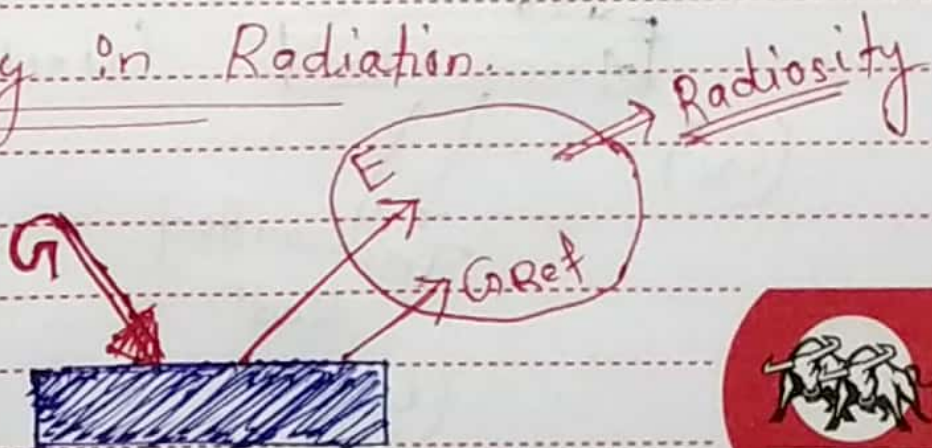 y in Radiation.
Radiosity
E
G
GRef